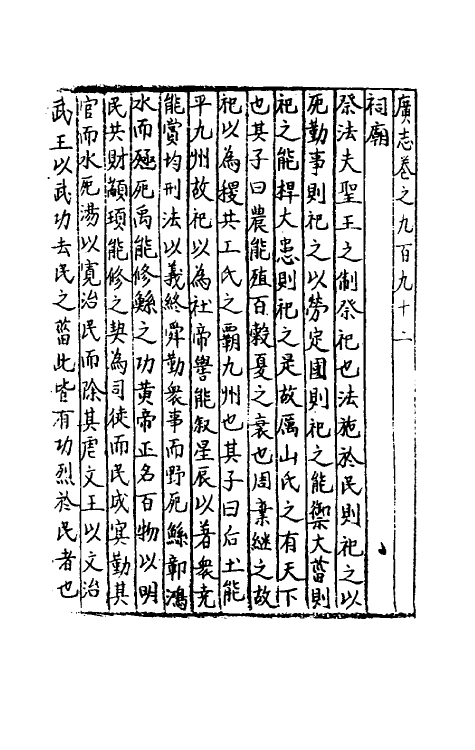 廣志卷之九百九十二
祠廟
祭法夫聖王之制祭祀也法施於民則祀之以
死勤事則祀之以勞定國則祀之能禦大菑則
祀之能捍大患則祀之是故厲山氏之有天下
也其子曰農能殖百穀夏之衰也周棄繼之故
祀以為稷共工氏之霸九州也其子曰后土能
平九州故祀以為社帝嚳能叙星辰以著衆堯
能賞均刑法以義終舜勤衆事而野死鯀鄣鴻
水而殛死禹能修鯀之功黃帝正名百物以明
民共財顓頊能修之契為司徒而民成冥勤其
官而水死湯以寬治民而除其虐文王以文治
武王以武功去民之菑此皆有功烈於民者也